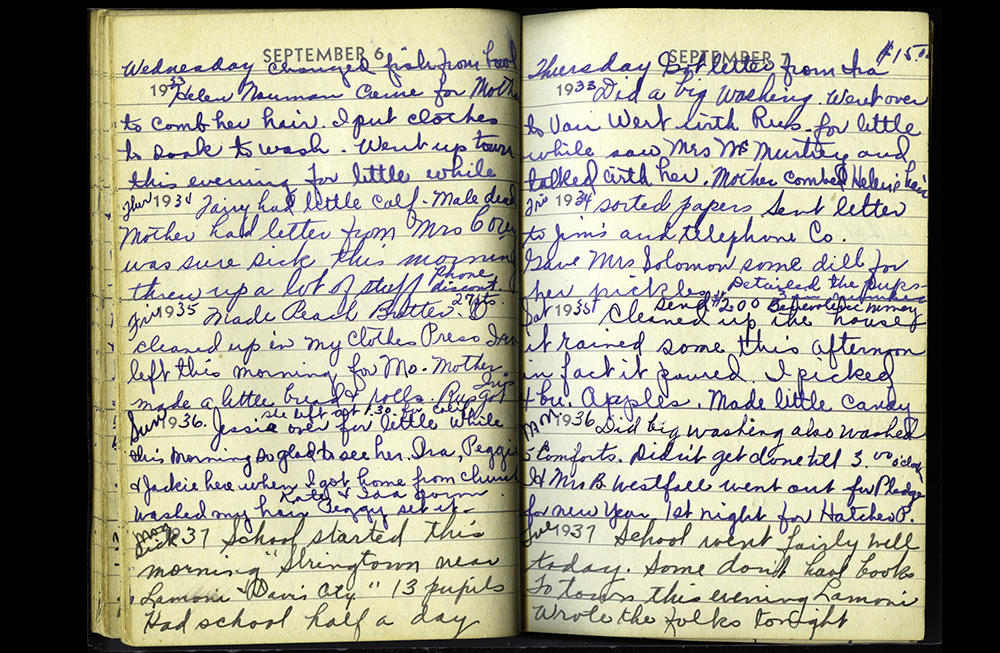 SEPTEMBER 6
Wednesday changed fish from bowl
1933 Helen Nauman Came for Mother
to comb her hair. I put clothes
to soak to wash. Went up town
this evening for little while
Thur 1934 Fairy had little calf - Male dead
Mother had letter from Mrs
was sure sick this morning
threw up a lot of stuff Phone discount
Fri 1935 Made Peach Butter. 27 qts.
cleaned up in my Clothes Press Ira
left this morning for Mo. Mother
made a little bread & rolls. Rus got
she left at 1.30 for
Sun 1936. Jessie over for little while
this morning so glad to see her. Ira, Peggie
& Jackie here when I got home from church
Kate & Ira down
washed my hair Peggy set it.
Mon
1937 School started this
morning "Stringtown near
Lamoni & Davis City" 13 pupils
Had school half a day
SEPTEMBER 7
$15.00
Thursday Got letter from Ira
1933 Did a big washing. Went over
to Van Went with Rus. for little
while saw Mrs Mc Murtrey and
talked with her. Mother combed Helen's hair
Fri 1934 sorted papers sent letter
to Jim's and telephone Co.
Gave Mrs Solomon some dill for
her pickles. the pups
Send $2.00 money
Sat 1935 Cleaned up the house
it rained some this afternoon
in fact it poured. I picked
4 bu. Apples. Made little candy
Mon 1936 Did big washing also washed
5 Comforts. Didn't get done till 3.00 o'clock
& Mrs B. Westfall went out for Pledge
for new Year. 1st night for Hatcher P.
Tue 1937 School went fairly well
today. Some don't have books
To town this evening Lamoni
Wrote the folks tonight